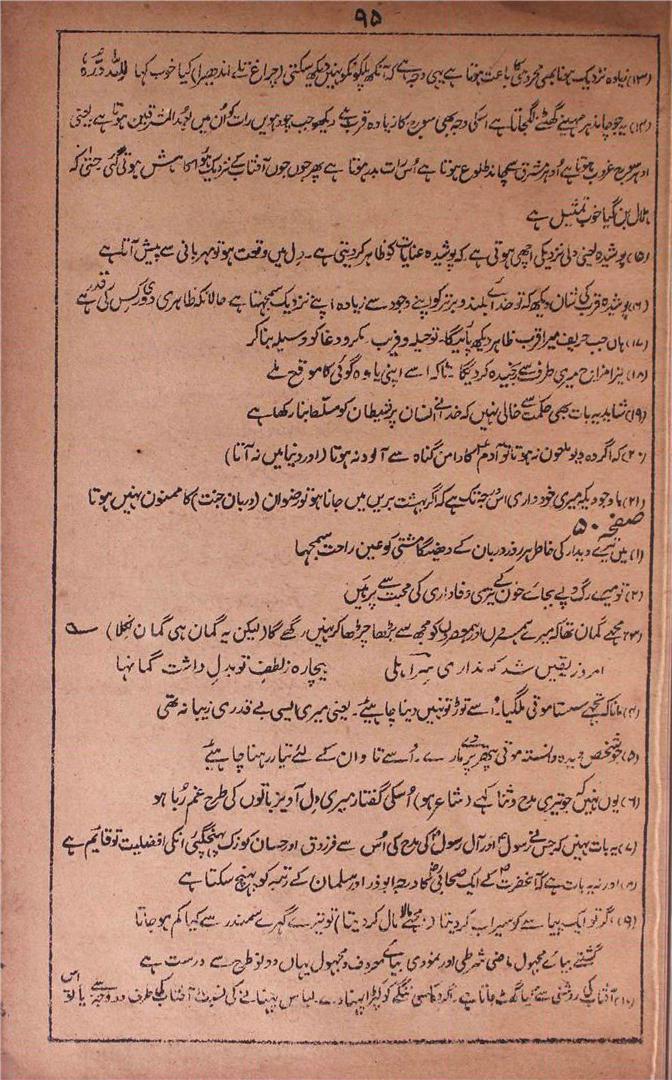 ۹۵
(۱۳) زیادہ نزدیک ہونا بھی محرومی کا باعث ہوتا ہے یہی وجہ ہے کہ آنکھ پلکو نکو نہیں دیکھ سکتی (چراغ تلے اندھیرا) کیا خوب کہا للہ درہ
(۱۴) یہ جو چاند ہر مہینے گھٹنے لگجاتا ہے اسکی وجہ بھی سورج کا زیادہ قرب ہے دیکھو جب چودہویں رات کو ان میں بُعد المشرقین ہوتا ہے یعنی
ادہر سورج غروب ہوتا ہے اُدہر مشرق سے چاند طلوع ہوتا ہے اُس رات بدر ہوتا ہے پھر جوں جوں آفتاب کے نزدیک ہوا کاہش ہوتی گئی حتیٰ کہ
ہلال بن گیا خوب تمثیل ہے
(۱۵) پوشیدہ یعنی دلی نزدیکی اچھی ہوتی ہے کہ پوشیدہ عنایات کو ظاہر کر دیتی ہے۔ دل میں وقعت ہو تو مہربانی سے پیش آتا ہے
(۱۶) پوشیدہ قرب کی شان دیکھ کہ تو خدائے بلند و برتر کو اپنے وجود سے زیادہ اپنے نزدیک سمجہتا ہے حالانکہ ظاہری دوری کس قدر ہے
(۱۷) ہاں جب حریف میرا قرب ظاہر دیکھ پائیگا۔ تو حیلہ و فریب۔ مکر و دغا کو وسیلہ بنا کر
(۱۸) تیرا مزاج میری طرف سے رنجیدہ کر دیگا تاکہ اسے اپنی یاوہ گوئی کا موقع ملے
(۱۹) شاید یہ بات بھی حکمت سے خالی نہیں کہ خدا نے انسان پر شیطان کو مسلط بنا رکھا ہے
(۲۰) کہ اگر وہ دیو ملعون نہ ہوتا تو آدمؑ کا دامن گناہ سے آلودہ نہ ہوتا (اور دنیا میں نہ آتا)
(۲۱) باوجودیکہ میری خودداری اس حد تک ہے کہ اگر بہشت بریں میں جانا ہو تو رضوان (دربان جنت) کا ممنون نہیں ہوتا
صفحہ ۵۰
(۱) میں نے تیرے دیدار کی خاطر ہر روز دربان کے کو عین راحت سمجہا
(۲) تو میرے رگ و پے بجائے خون کے تیری وفاداری کی محبت سے پر ہیں
(۳) مجھے گمان تھا کہ میرے ہمسروں اور ہمعصروں کو مجھ سے بڑھا چڑھا کر نہیں رکھے گا (لیکن یہ گمان ہی گمان نکلا)
امروز یقیں شد کہ نداری سر اہلی بیچارہ ز لطفِ تو بدل داشت گمانہا
(۴) مانا کہ تجھے سستا موتی ملگیا۔ اُسے توڑ تو نہیں دینا چاہیئے۔ یعنی میری ایسی بے قدری زیبا نہ تھی
(۵) جو شخص دیدہ و دانستہ موتی پتھر پر دے مارے۔ اُسے تاوان کے لئے تیار رہنا چاہیئے
(۶) یوں نہیں کہ جو تیری مدح و ثنا کہے (شاعر ہو) اُسکی گفتار میری دل آویز باتوں کی طرح غم رُبا ہو
(۷) یہ بات نہیں کہ جس نے رسولؐ اور آل رسولؐ کی مدح کی اُس سے فرزدق اور حسان کو زک پہنچگئی انکی افضلیت تو قایم ہے
(۸) اور نہ یہ بات ہے کہ آنحضرتؐ کے ایک صحابیؓ کا درجہ ابوذر اور سلمان کے رتبہ کو پہنچ سکتا ہے
(۹) گر تو ایک پیاسے کو سیراب کر دیتا (مجھے مالا مال کر دیتا) تو تیرے گہرے سمندر سے کیا کم ہو جاتا
گشتے بیائے مجہول ماضی شرطی اور نمودی بیائے معروف و مجہول یہاں دو نو طرح سے درست ہے
(۱۰) آفتاب کی روشنی سے کیا گھٹ جاتا ہے۔ اگر وہ کسی ننگے کو کپڑا پہنا دے۔ لباس پہنانے کی نسبت آفتاب کی طرف دو وجہ سے یا تو اس